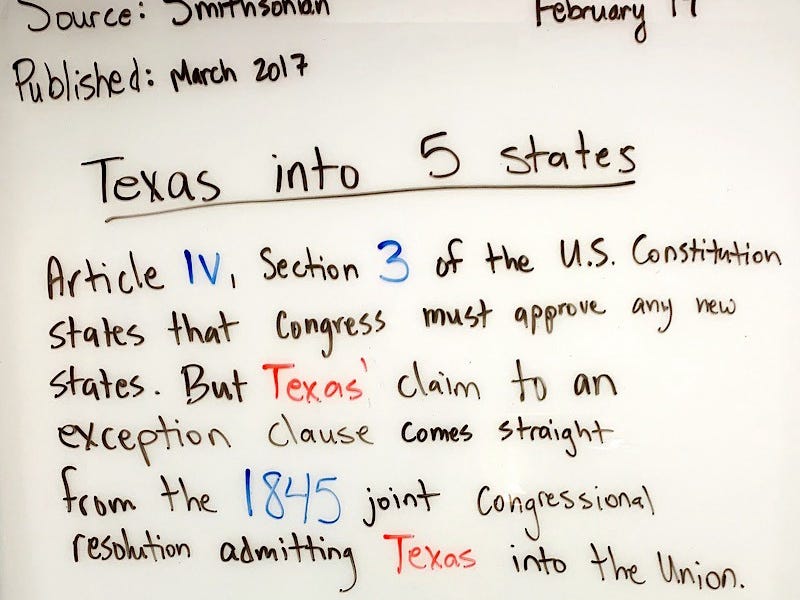 Source: Smithsonian
February 17
Published: March 2017
Texas into 5 states
Article IV, Section 3 of the U.S. Constitution
states that Congress must approve any new
states. But Texas' claim to an
exception clause comes straight
from the 1845 joint Congressional
resolution admitting Texas into the Union.